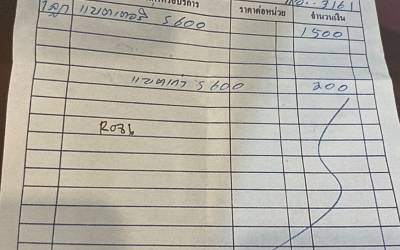 ราคาต่อหน่วย จำนวนเงิน
1 ลูก แบตเตอรี่ S 600 1500
แบตเก่า S 600 200